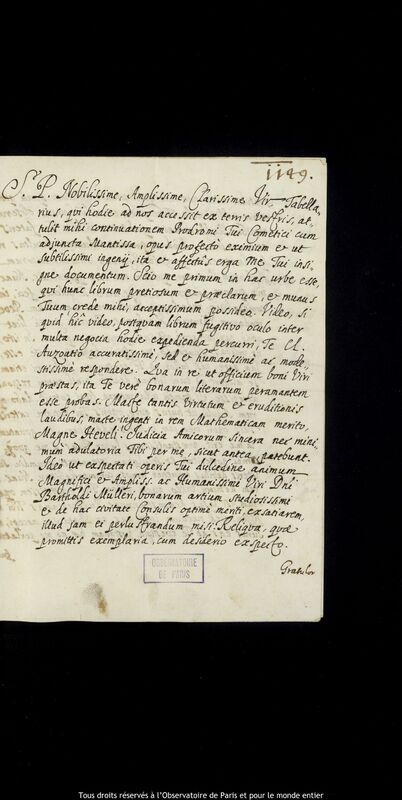 1149.
S. P. Nobilissime, Amplissime, Clarissime Vir. Tabella-
rius, qui hodie ad nos accessit ex terris vestris, at-
tulit mihi continuationem Prodromi Tui Cometici cum
adjuncta Mantissa, opus profecto eximium et ut
subtilissimi ingenij, ita et affectus erga me Tui insi-
gne documentum. Scio me primum in hac urbe esse,
qui hunc librum pretiosum et præclarum, et munus
Tuum, crede mihi, acceptissimum possideo. Video, si
quid hic video, postquam librum fugitivo oculo inter
multa negocia hodie expedienda percurri, Te Cl.
Auzoutio accuratissimè, sed et humanissimè ac mode-
stissime respondere. Qua in re ut officium boni Viri
præstas, ita Te verè bonarum literarum peramantem
esse probas. Macte tantis virtutum et eruditionis
laudibus, macte ingenti in rem Mathematicam merito,
Magne Heveli! Judicia Amicorum sincera nec mini-
mum adulatoria Tibi per me, sicut antea, patebunt.
Ideò ut exspectati operis Tui dulcedine animum
Magnifici et Ampliss. ac Humanissimi Viri Dni
Bartholdi Mülleri, bonarum artium studiosissimi
et de hac civitate Consulis optimè meriti, exsatiarem,
illud jam ei perlustrandum misi. Reliqua, quæ
promittis exemplaria, cum desiderio exspecto.
Gratulor
OBSERVATOIRE
DE PARIS
Tous droits réservés à l'Observatoire de Paris et pour le monde entier